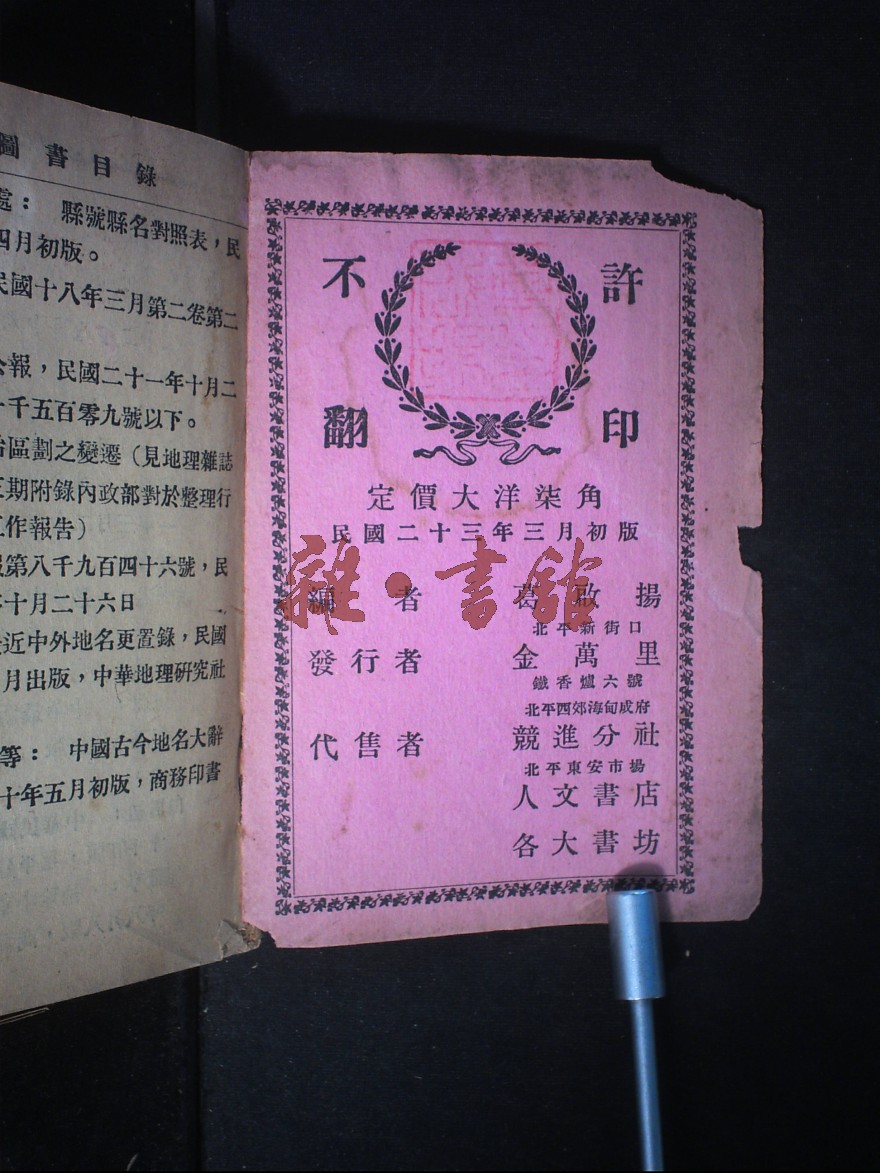 圖書目錄
處： 縣號縣名對照表，民
四月初版。
民國十八年三月第二卷第二
公報，民國二十一年十月二
一千五百零九號以下。
治區劃之變遷（見地理雜誌
三期附錄內政部對於整理行
工作報告）
報第八千九百四十六號，民
十月二十六日
最近中外地名更置錄，民國
月出版，中華地理研究社
等： 中國古今地名大辭
十年五月初版，商務印書
不許
翻印
定價大洋柒角
民國二十三年三月初版
編者 葛啟揚
北平新街口
發行者 金萬里
鐵香爐六號
北平西郊海甸成府
代售者 競進分社
北平東安市場
人文書店
各大書坊
雜·書館